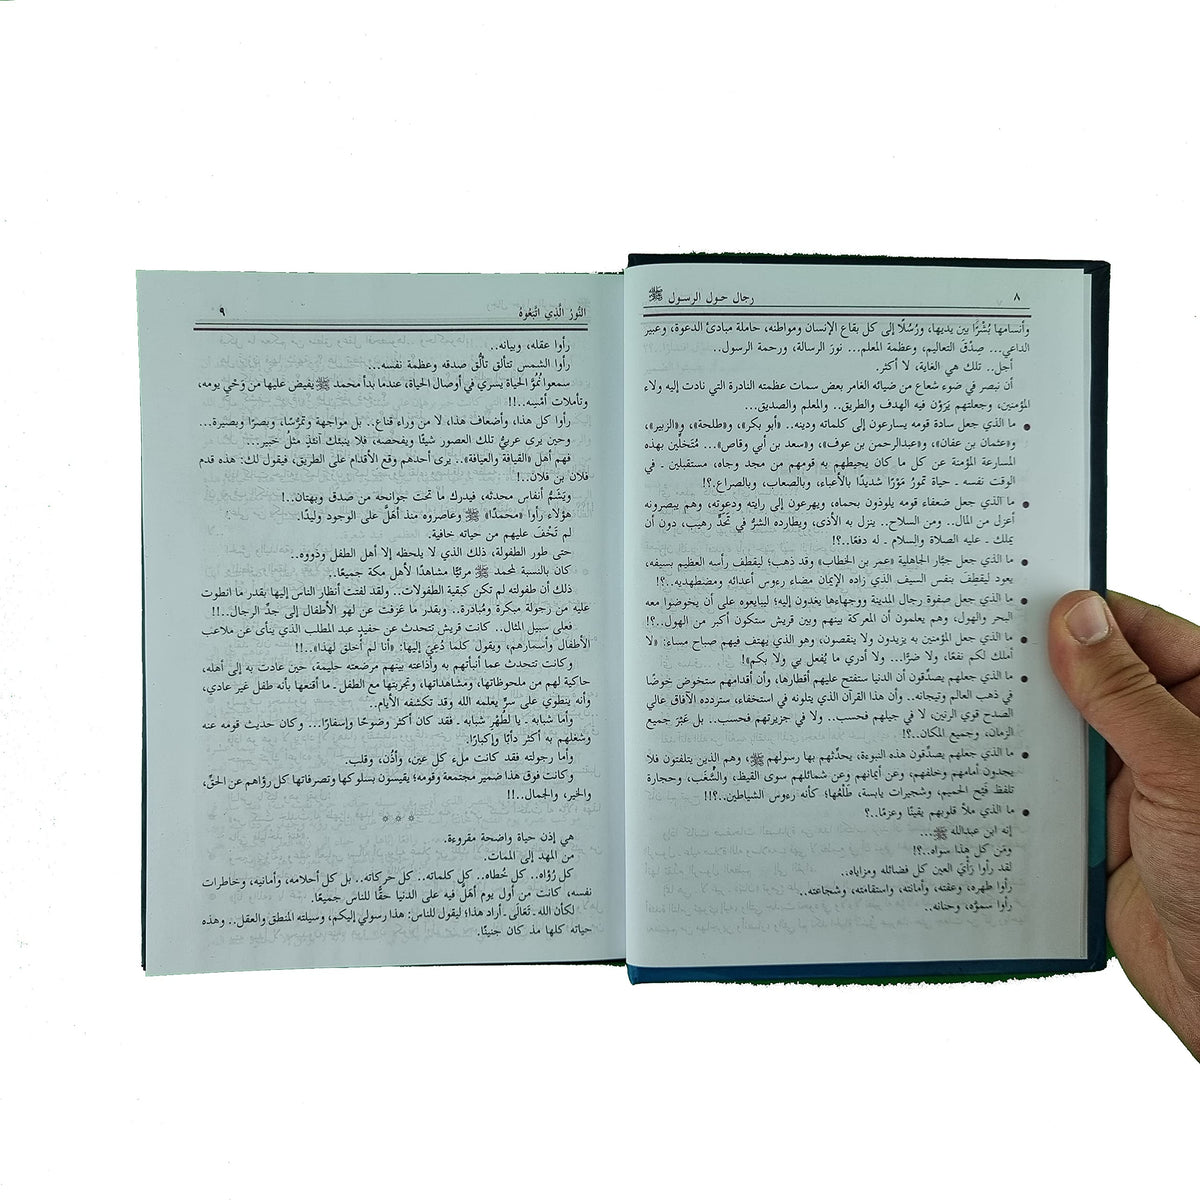 ٨ رجال حول الرسول ﷺ
وأنسامها بُشْرًا بين يديها، ورُسُلًا إلى كل بقاع الإنسان ومواطنه، حاملة مبادئ الدعوة، وعبير
الداعي... صِدْقَ التعاليم، وعظمة المعلم... نورَ الرسالة، ورحمة الرسول..
أجل.. تلك هي الغاية، لا أكثر.
أن نبصر في ضوء شعاع من ضيائه الغامر بعض سمات عظمته النادرة التي نادت إليه ولاء
المؤمنين، وجعلتهم يَرَوْن فيه الهدف والطريق.. والمعلم والصديق...
● ما الذي جعل سادة قومه يسارعون إلى كلماته ودينه.. «أبو بكر»، و«طلحة»، و«الزبير»،
و«عثمان بن عفان»، و«عبدالرحمن بن عوف»، و«سعد بن أبي وقاص»... مُتَخلِّين بهذه
المسارعة المؤمنة عن كل ما كان يحيطهم به قومهم من مجد وجاه، مستقبلين - في
الوقت نفسه - حياة تمورُ مَوْرًا شديدًا بالأعباء، وبالصعاب، وبالصراع.؟!
● ما الذي جعل ضعفاء قومه يلوذون بحماه، ويهرعون إلى رايته ودعوته، وهم يبصرونه
أعزل من المال.. ومن السلاح.. ينزل به الأذى، ويطارده الشرُّ في تَحَدٍّ رهيب، دون أن
يملك - عليه الصلاة والسلام - له دفعًا..؟!
● ما الذي جعل جبَّار الجاهلية «عمر بن الخطاب» وقد ذهب؛ ليقطف رأسه العظيم بسيفه،
يعود ليقطِفَ بنفس السيف الذي زاده الإيمان مضاء رءوس أعدائه ومضطهديه..؟!
● ما الذي جعل صفوة رجال المدينة ووجهاءها يغدون إليه؛ ليبايعوه على أن يخوضوا معه
البحر والهول، وهم يعلمون أن المعركة بينهم وبين قريش ستكون أكبر من الهول..؟!
● ما الذي جعل المؤمنين به يزيدون ولا ينقصون، وهو الذي يهتف فيهم صباح مساء: «لا
أملك لكم نفعًا، ولا ضرًا... ولا أدري ما يُفعل بي ولا بكم»!
● ما الذي جعلهم يصدِّقون أن الدنيا ستفتح عليهم أقطارها، وأن أقدامهم ستخوض خوضًا
في ذهب العالم وتيجانه.. وأن هذا القرآن الذي يتلونه في استخفاء، ستردده الآفاق عالي
الصدح قوي الرنين، لا في جيلهم فحسب.. ولا في جزيرتهم فحسب.. بل عَبْرَ جميع
الزمان، وجميع المكان..؟!
● ما الذي جعلهم يصدِّقون هذه النبوءة، يحدِّثهم بها رسولهم ﷺ، وهم الذين يتلفتون فلا
يجدون أمامهم وخلفهم، وعن أيمانهم وعن شمائلهم سوى القيظ، والسُّغَب، وحجارة
تلفظ فَيْح الحميم، وشجيرات يابسة، طَلْعُها؛ كأنه رءوس الشياطين..؟!!
● ما الذي ملأ قلوبهم يقينًا وعزمًا..؟
إنه ابن عبدالله ﷺ...
ومَن كل هذا سواه..؟!
لقد رأوا رَأْيَ العين كل فضائله ومزاياه..
رأوا طهره، وعفته، وأمانته، واستقامته، وشجاعته..
رأوا سموَّه، وحنانه..
النُّورُ الَّذِي اتَّبَعُوهُ ٩
رأوا عقله، وبيانه..
رأوا الشمس تتألق تألُّق صدقه وعظمة نفسه...
سمعوا نُمُوَّ الحياة يسري في أوصال الحياة، عندما بدأ محمد ﷺ يفيض عليها من وَحْي يومه،
وتأملات أمْسِه..!!
رأوا كل هذا، وأضعاف هذا، لا من وراء قناع.. بل مواجهة وتمَرُّسًا، وبصرًا وبصيرة...
وحين يرى عربيُّ تلك العصور شيئًا ويفحصه، فلا ينبئك آنئذٍ مثلُ خبير...
فهم أهل «القيافة والعيافة».. يرى أحدهم وقع الأقدام على الطريق، فيقول لك: هذه قدم
فلان بن فلان..!
ويَشَمُّ أنفاس محدثه، فيدرك ما تحت جوانحه من صدق وبهتان..!
هؤلاء رأوا «محمدًا» ﷺ وعاصروه منذ أهَلَّ على الوجود وليدًا.
لم تَخْفَ عليهم من حياته خافية.
حتى طور الطفولة، ذلك الذي لا يلحظه إلا أهل الطفل وذووه..
كان بالنسبة لمحمد ﷺ مرئيًّا مشاهدًا لأهل مكة جميعًا..
ذلك أن طفولته لم تكن كبقية الطفولات.. ولقد لفتت أنظار الناس إليها بقدر ما انطوت
عليه من رجولة مبكرة ومُبادرة.. وبقدر ما عَزَفت عن لهو الأطفال إلى جدِّ الرجال..!!
فعلى سبيل المثال.. كانت قريش تتحدث عن حفيد عبد المطلب الذي ينأى عن ملاعب
الأطفال وأسمارهم، ويقول كلما دُعِيَ إليها: «أنا لم أُخلق لهذا»..!!
وكانت تتحدث عما أنبأتهم به وأذاعته بينهم مرضعته حليمة، حين عادت به إلى أهله،
حاكية لهم من ملحوظاتها، ومشاهداتها، وتجربتها مع الطفل - ما أقنعها بأنه طفل غير عادي،
وأنه ينطوي على سرٍّ يعلمه الله وقد تكشفه الأيام..
وأما شبابه - يا لَطُهْرِ شبابه - فقد كان أكثر وضوحًا وإسفارًا... وكان حديث قومه عنه
وشغلهم به أكثر دأبًا وإكبارًا.
وأما رجولته فقد كانت ملء كل عين، وأذُن، وقلب.
وكانت فوق هذا ضمير مجتمعة وقومه؛ يقيسون بسلوكها وتصرفاتها كل رؤاهم عن الحقِّ،
والخير، والجمال..!!
* * *
هي إذن حياة واضحة مقروءة.
من المهد إلى الممات.
كل رُؤاه.. كل خُطاه.. كل كلماته.. كل حركاته.. بل كل أحلامه، وأمانيه، وخاطرات
نفسه، كانت من أول يوم أهَلَّ فيه على الدنيا حقًّا للناس جميعًا.
لكأن الله - تَعَالَى - أراد هذا؛ ليقول للناس: هذا رسولي إليكم، وسيلته المنطق والعقل.. وهذه
حياته كلها مذ كان جنينًا.